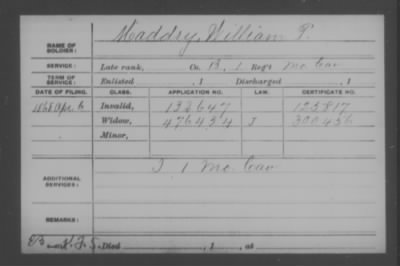 Maddry, William P.
NAME OF SOLDIER:
SERVICE: Late rank, Co. B, 1 Reg't Mo. Cav
TERM OF SERVICE: Enlisted , 1 Discharged , 1
DATE OF FILING. CLASS. APPLICATION NO. LAW. CERTIFICATE NO.
1868 Apr. 6 Invalid, 132647 123817
Widow, 476434 J 300456
Minor,
ADDITIONAL SERVICES: I 1 Mo. Cav
REMARKS:
Died , 1 , at